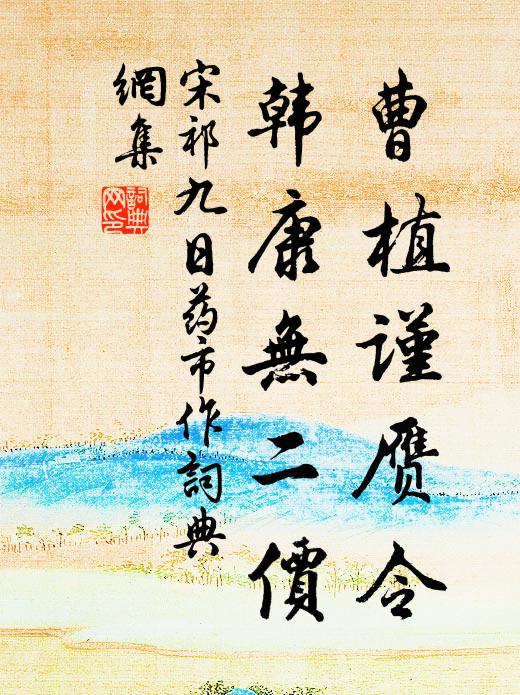 曹植謹赝令
韓康無二價
宋祁九日药市作詞典
網集
詞典
网印